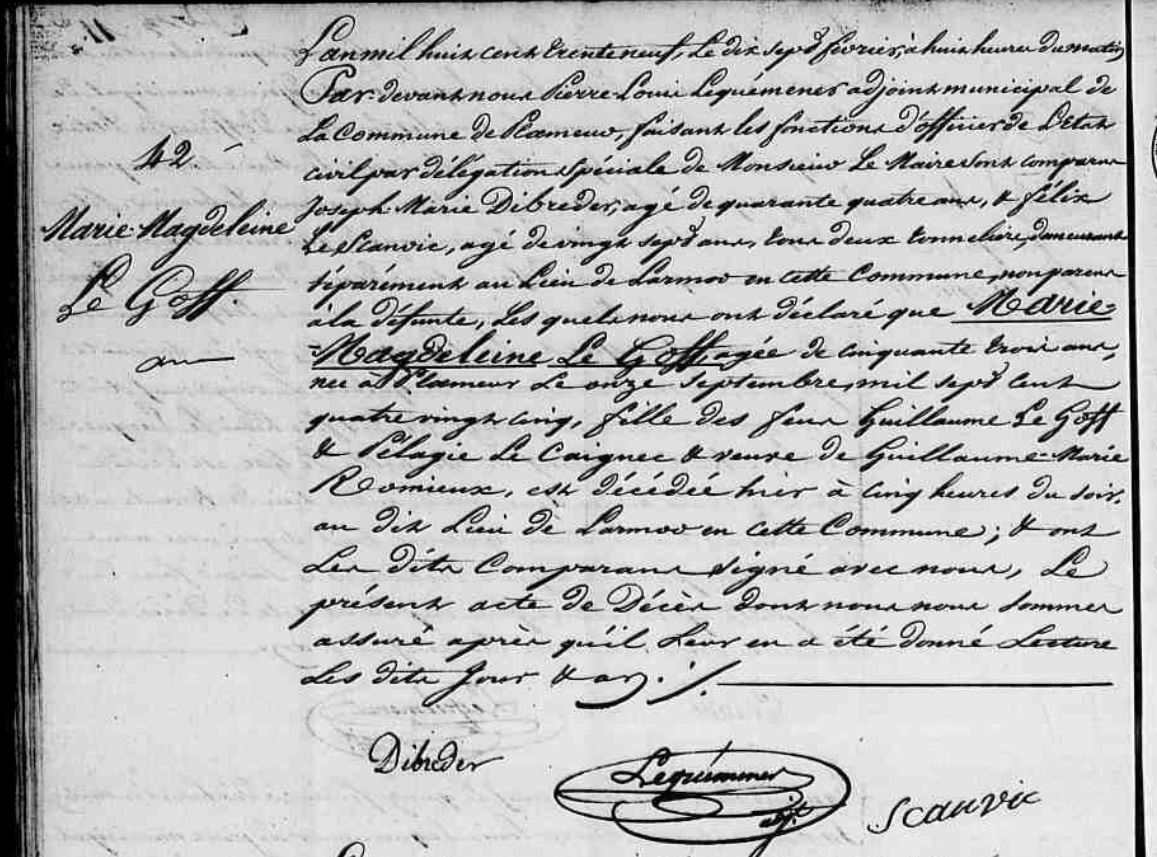 42
Marie-Magdeleine
Le Goff.
L'an mil huit cent trente neuf, Le dix sept février, à huit heures du matin
Par-devant nous Pierre-Louis Lequémener adjoint municipal de
La Commune de Ploemeur, faisant les fonctions d'officier de L'Etat
civil par délégation spéciale de Monsieur Le Maire sont comparus
Joseph-Marie Dibreder, agé de quarante quatre ans, & félix
Le Scanvic, agé de vingt sept ans, tous deux tonneliers, demeurant
séparément au Lieu de Larmor en cette Commune, non parens
à la défunte, Les quels nous ont déclaré que Marie-
-Magdeleine Le Goff, agée de cinquante trois ans,
née à Ploemeur Le onze Septembre, mil sept cent
quatre vingt cinq, fille des feus Guillaume Le Goff
& Pélagie Le Caignec & veuve de Guillaume-Marie
Romieux, est décédée hier à cinq heures du soir,
au dit Lieu de Larmor en cette Commune; & ont
Les dits Comparans signé avec nous, Le
présent acte de Décès dont nous nous sommes
assuré après qu'il Leur en a été donné Lecture
Les dits Jour & an. ./.
Dibreder
Lequémener
adj.
Scanvic